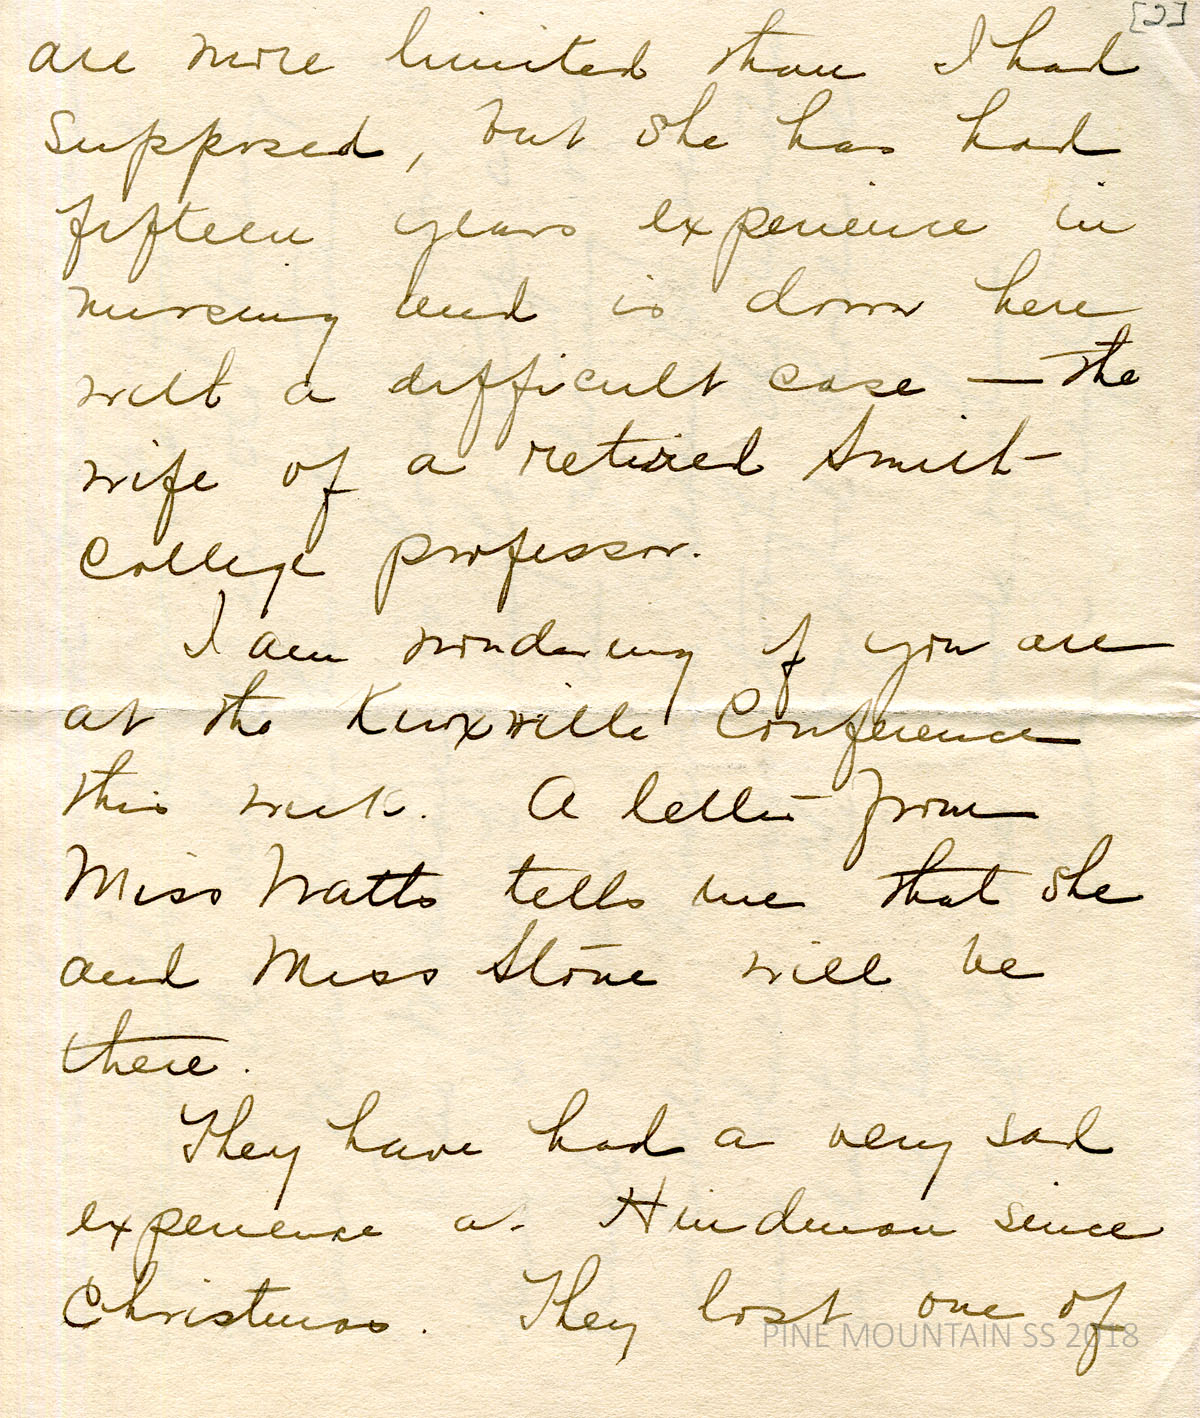 [2]
are more limited than I had
supposed, but she has had
fifteen years experience in
nursing and is down here
with a difficult case — the
wife of a retired Smith
College professor.
I am wondering if you are
at the Knoxville Conference
this week. A letter from
Miss Watts tells me that she
and Miss Stone will be
there.
They have had a very sad
experience at Hindman since
Christmas. They lost one of
PINE MOUNTAIN SS 2018